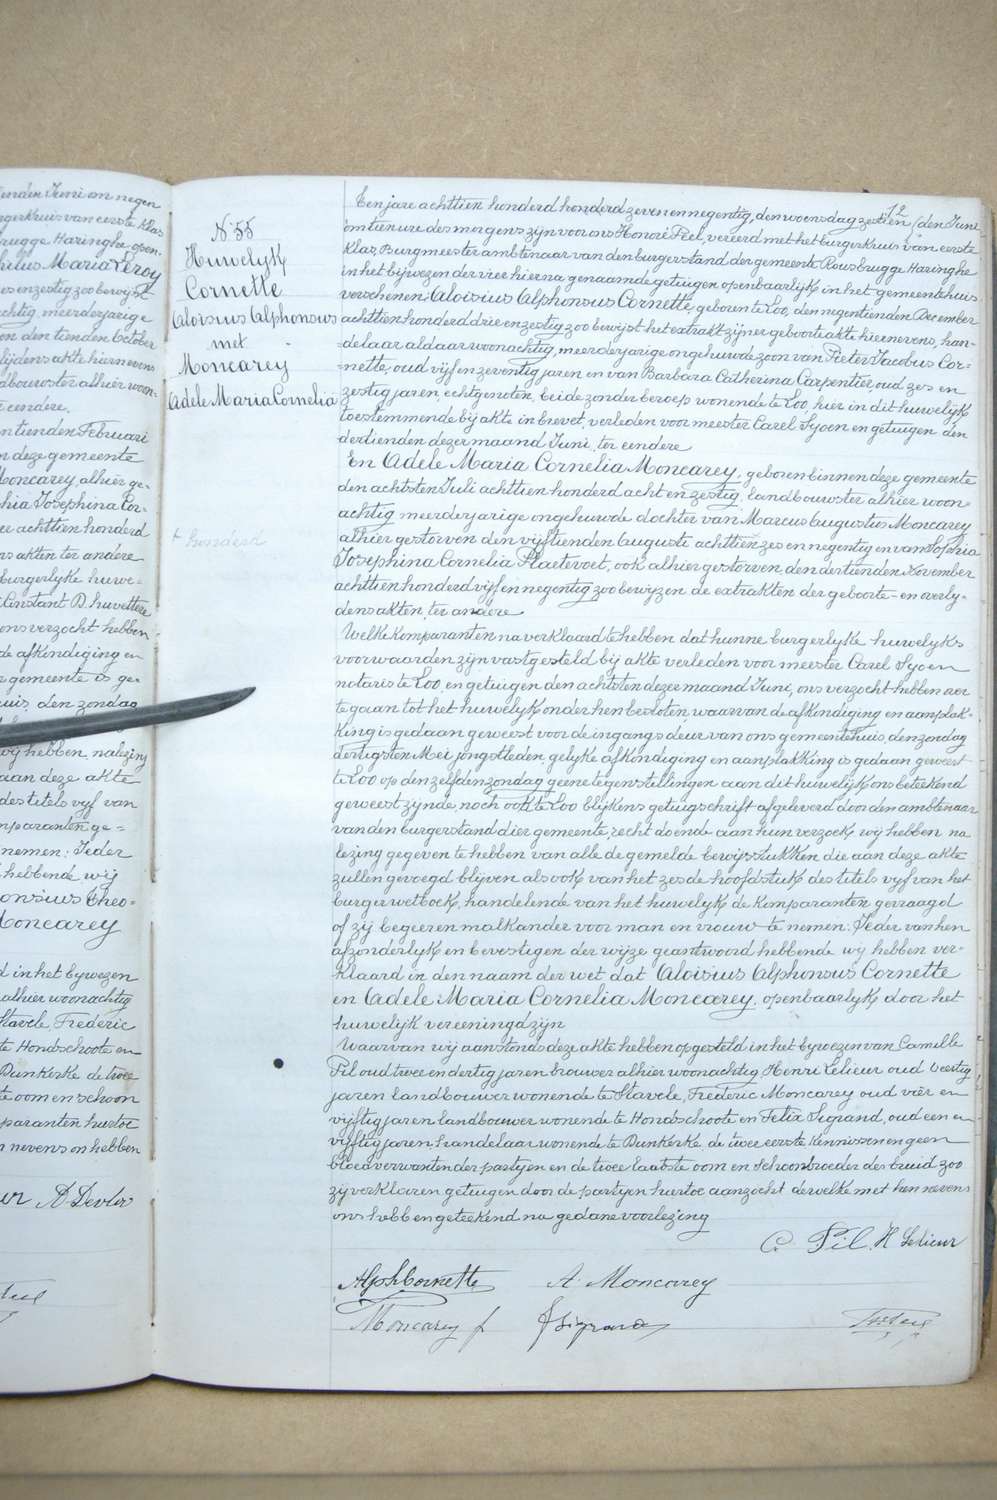 enden Juni om negen
burgerkruis van eerste klas
brugge Haringhe, open-
Maria Leroy
en zestig zoo bewijst
achtig, meerderjarige
on den tienden October
lijdens akte hiernevens
landbouwster alhier woon-
t' eendere.
en tienden Februari
n deze gemeente
Moncarey, alhier ge-
phia Josephina Cor-
er achttien honderd
rs akten ter andere
burgerlyke huwe-
Constant D'huvettere
ons verzocht hebben
de afkondiging en
e gemeente is ge-
uis, den zondag
wij hebben, na lezing
aan deze akte
des titels vyf van
mparanten ge-
nemen: Jeder
hebbende, wij
onsius Theo-
Moncarey
d in het bywezen
alhier woonachtig
Stavele, Frederic
te Hondschoote en
Dunkerke de twee
te oom en schoon
paranten hiertoe
n nevens on hebben
A. Devlov
N. 55
Huwelyk
Cornette
Aloisius Alphonsus
met
Moncarey
Adele Maria Cornelia
+ honderd
12
Een jare achttien honderd honderd zeven en negentig, den woensdag zestien / den Juni
om tien ure des morgens zyn voor ons Honoré Peel, vereerd met het burgerkruis van eerste
klas, Burgmeester ambtenaar van den burgerstand der gemeente Rousbrugge Haringhe
in het bijwezen der vier hierna genaamde getuigen openbaarlyk in het gemeentehuis
verschenen: Aloisius Alphonsus Cornette, geboren te Loo, den negentienden December
achttien honderd drie en zestig zoo bewijst het extrakt zijner geboorteakte hiernevens, han-
delaar aldaar woonachtig, meerderjarige ongehuwde zoon van Pieter Jacobus Cor-
nette, oud vijf en zeventig jaren en van Barbara Catherina Carpentier, oud zes en
zestig jaren, echtgenoten, beide zonder beroep wonende te Loo, hier in dit huwelijk
toestemmende bij akte in brevet, verleden voor meester Carel Syoen en getuigen den
dertienden dezer maand Juni, ter eendere
En Adele Maria Cornelia Moncarey, geboren binnen deze gemeente
den achtsten Juli achttien honderd acht en zestig, landbouwster alhier woon-
achtig meerderjarige ongehuwde dochter van Marcus Augustus Moncarey
alhier gestorven den vijftienden Auguste achttien zes en negentig en van Sophia
Josephina Cornelia Plaetevoet, ook alhier gestorven, den dertienden November
achttien honderd vijf en negentig zoo bewijzen de extrakten der geboorte- en overly-
dens akten, ter andere
Welke komparanten na verklaard te hebben dat hunne burgerlyke huwelyks
voorwaarden zijn vastgesteld bij akte verleden voor meester Carel Syoen
notaris te Loo, en getuigen den achtsten dezer maand Juni, ons verzocht hebben over
te gaan tot het huwelyk onder hen besloten waarvan de afkondiging en aanplak-
king is gedaan geweest voor de ingangsdeur van ons gemeentehuis, den zondag
dertigsten Mei jongstleden, gelyke afkondiging en aanplakking is gedaan geweest
te Loo op den zelfden zondag geene tegenstellingen aan dit huwelijk ons beteekend
geweest zynde, noch ook te Loo blijkens getuigschrift afgeleverd door den ambtenaar
van den burgerstand dier gemeente, recht doende aan hun verzoek wij hebben na
lezing gegeven te hebben van alle de gemelde bewijsstukken die aan deze akte
zullen gevoegd blijven alsook van het zesde hoofdstuk des titels vyf van het
burgerwetboek, handelende van het huwelyk de komparanten gevraagd
of zij begeeren malkander voor man en vrouw te nemen: Jeder van hen
afzonderlyk en bevestigen der wijze geantwoord hebbende wij hebben ver-
klaard in den naam der wet dat Aloisius Alphonsus Cornette
en Adele Maria Cornelia Moncarey, openbaarlyk door het
huwelijk vereeningd zijn
Waarvan wij aanstonds deze akte hebben opgesteld in het bywezen van Camille
Pil oud twee en dertig jaren brouwer alhier woonachtig Henri Lelieur oud veertig
jaren landbouwer wonende te Stavele, Frederic Moncarey oud vier en
vijftig jaren landbouwer wonende te Hondschoote en Felix Sigrand, oud een en
vijftig jaren, handelaar wonende te Dunkerke de twee eerste kennissen en geen
bloedverwanten der partyen en de twee laatste oom en schoonbroeder der bruid zoo
zij verklaren getuigen door de partyen hiertoe aanzocht dewelke met hen nevens
ons hebben geteekend na gedane voorlezing
C. Pil H Lelieur
Alph Cornette A. Moncarey
Moncarey f F Sigrand